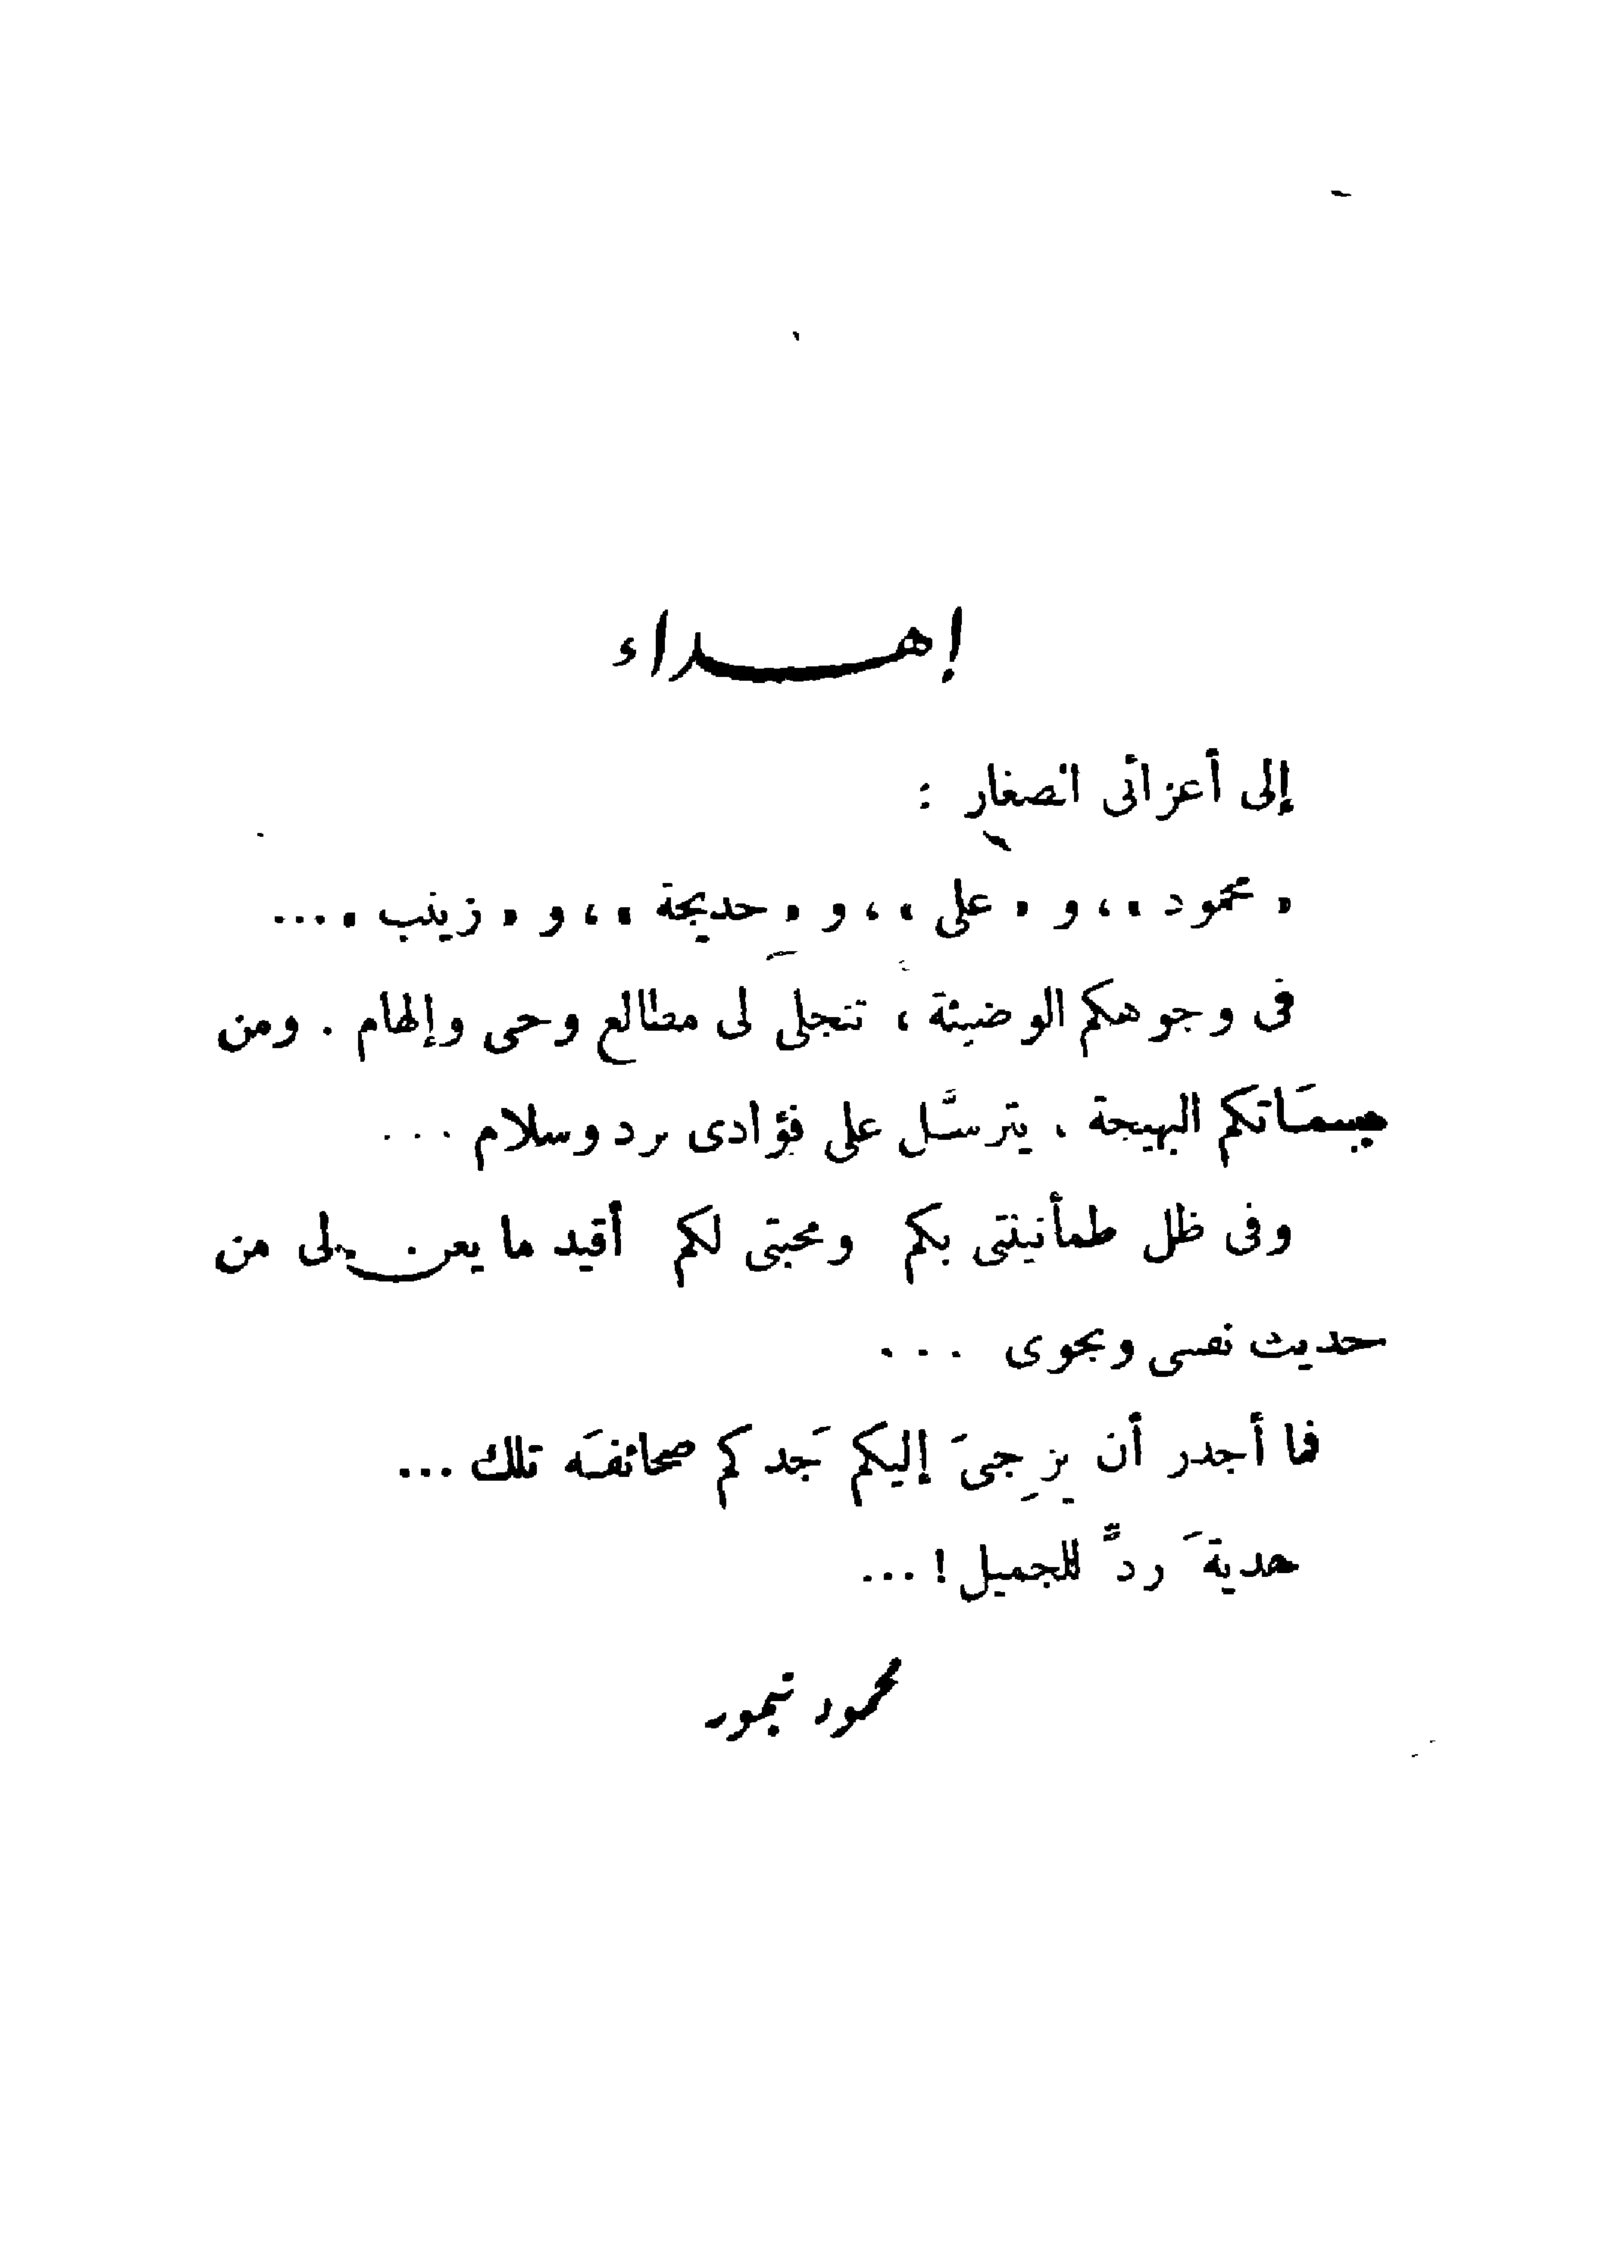 إهداء
إلى أعزائى الصغار :
« محمود » ، و « على » ، و « خديجة » ، و « زينب » ...
فى وجوهكم الوضيئة ، تتجلى لى مطالع وحى وإلهام . ومن
بسمَاتكم البهيجة ، يترسَّل على فؤادى برد وسلام ...
وفى ظل طمأنينتى بكم ومحبتى لكم أقيد ما يعن لى من
حديث نفسى ونجوى ...
فما أجدر أن يزجِىَ إليكم جَدكم صحائفَه تلك ...
هديةَ ردٍّ للجميل ! ...
محمود تيمور